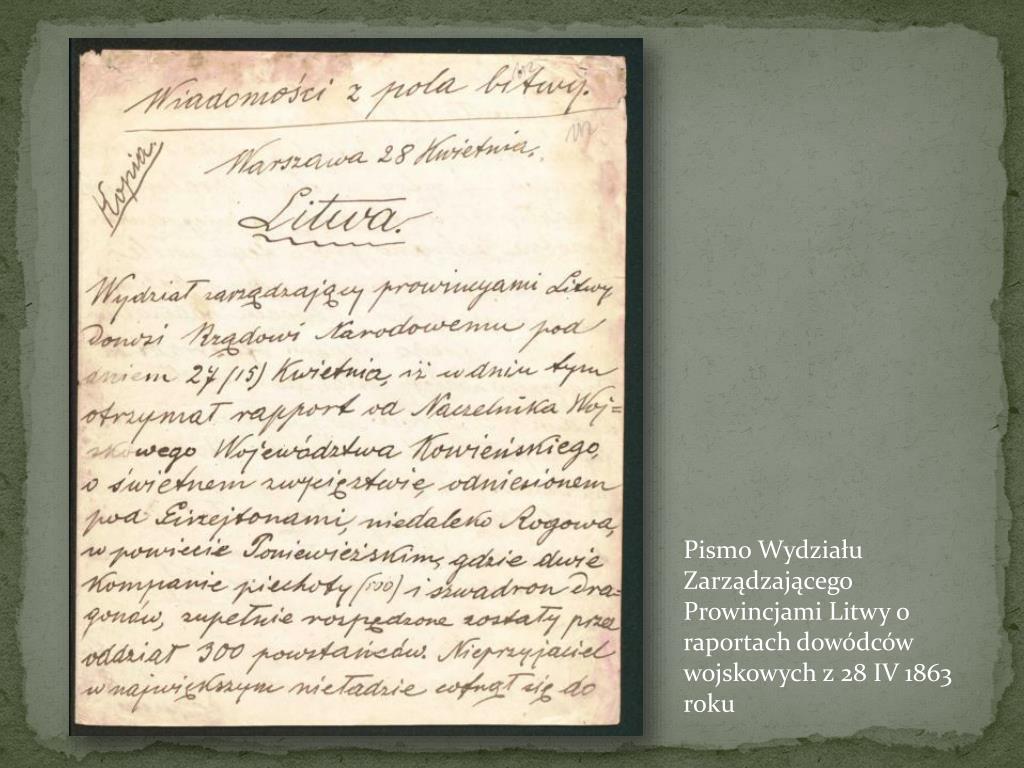 Wiadomości z pola bitwy.
Kopia.
Warszawa 28 Kwietnia.
Litwa.
Wydział zarządzający prowincyami Litwy
Donosi Rządowi Narodowemu pod
dniem 27 (15) Kwietnia, iż w dniu tym
otrzymał rapport od Naczelnika Woj=
skowego Województwa Kowieńskiego,
o świetnem zwycięztwie, odniesionem
pod, niedaleko Rogowa,
w powiecie Poniewieżskim, gdzie dwie
Kompanie piechoty (500) i szwadron Dra-
gonów, zupełnie rozpędzone zostały prze
oddział 300 powstańców. Nieprzyjaciel
w największym nieładzie cofnął się do
Pismo Wydziału
Zarządzającego
Prowincjami Litwy o
raportach dowódców
wojskowych z 28 IV 1863
roku